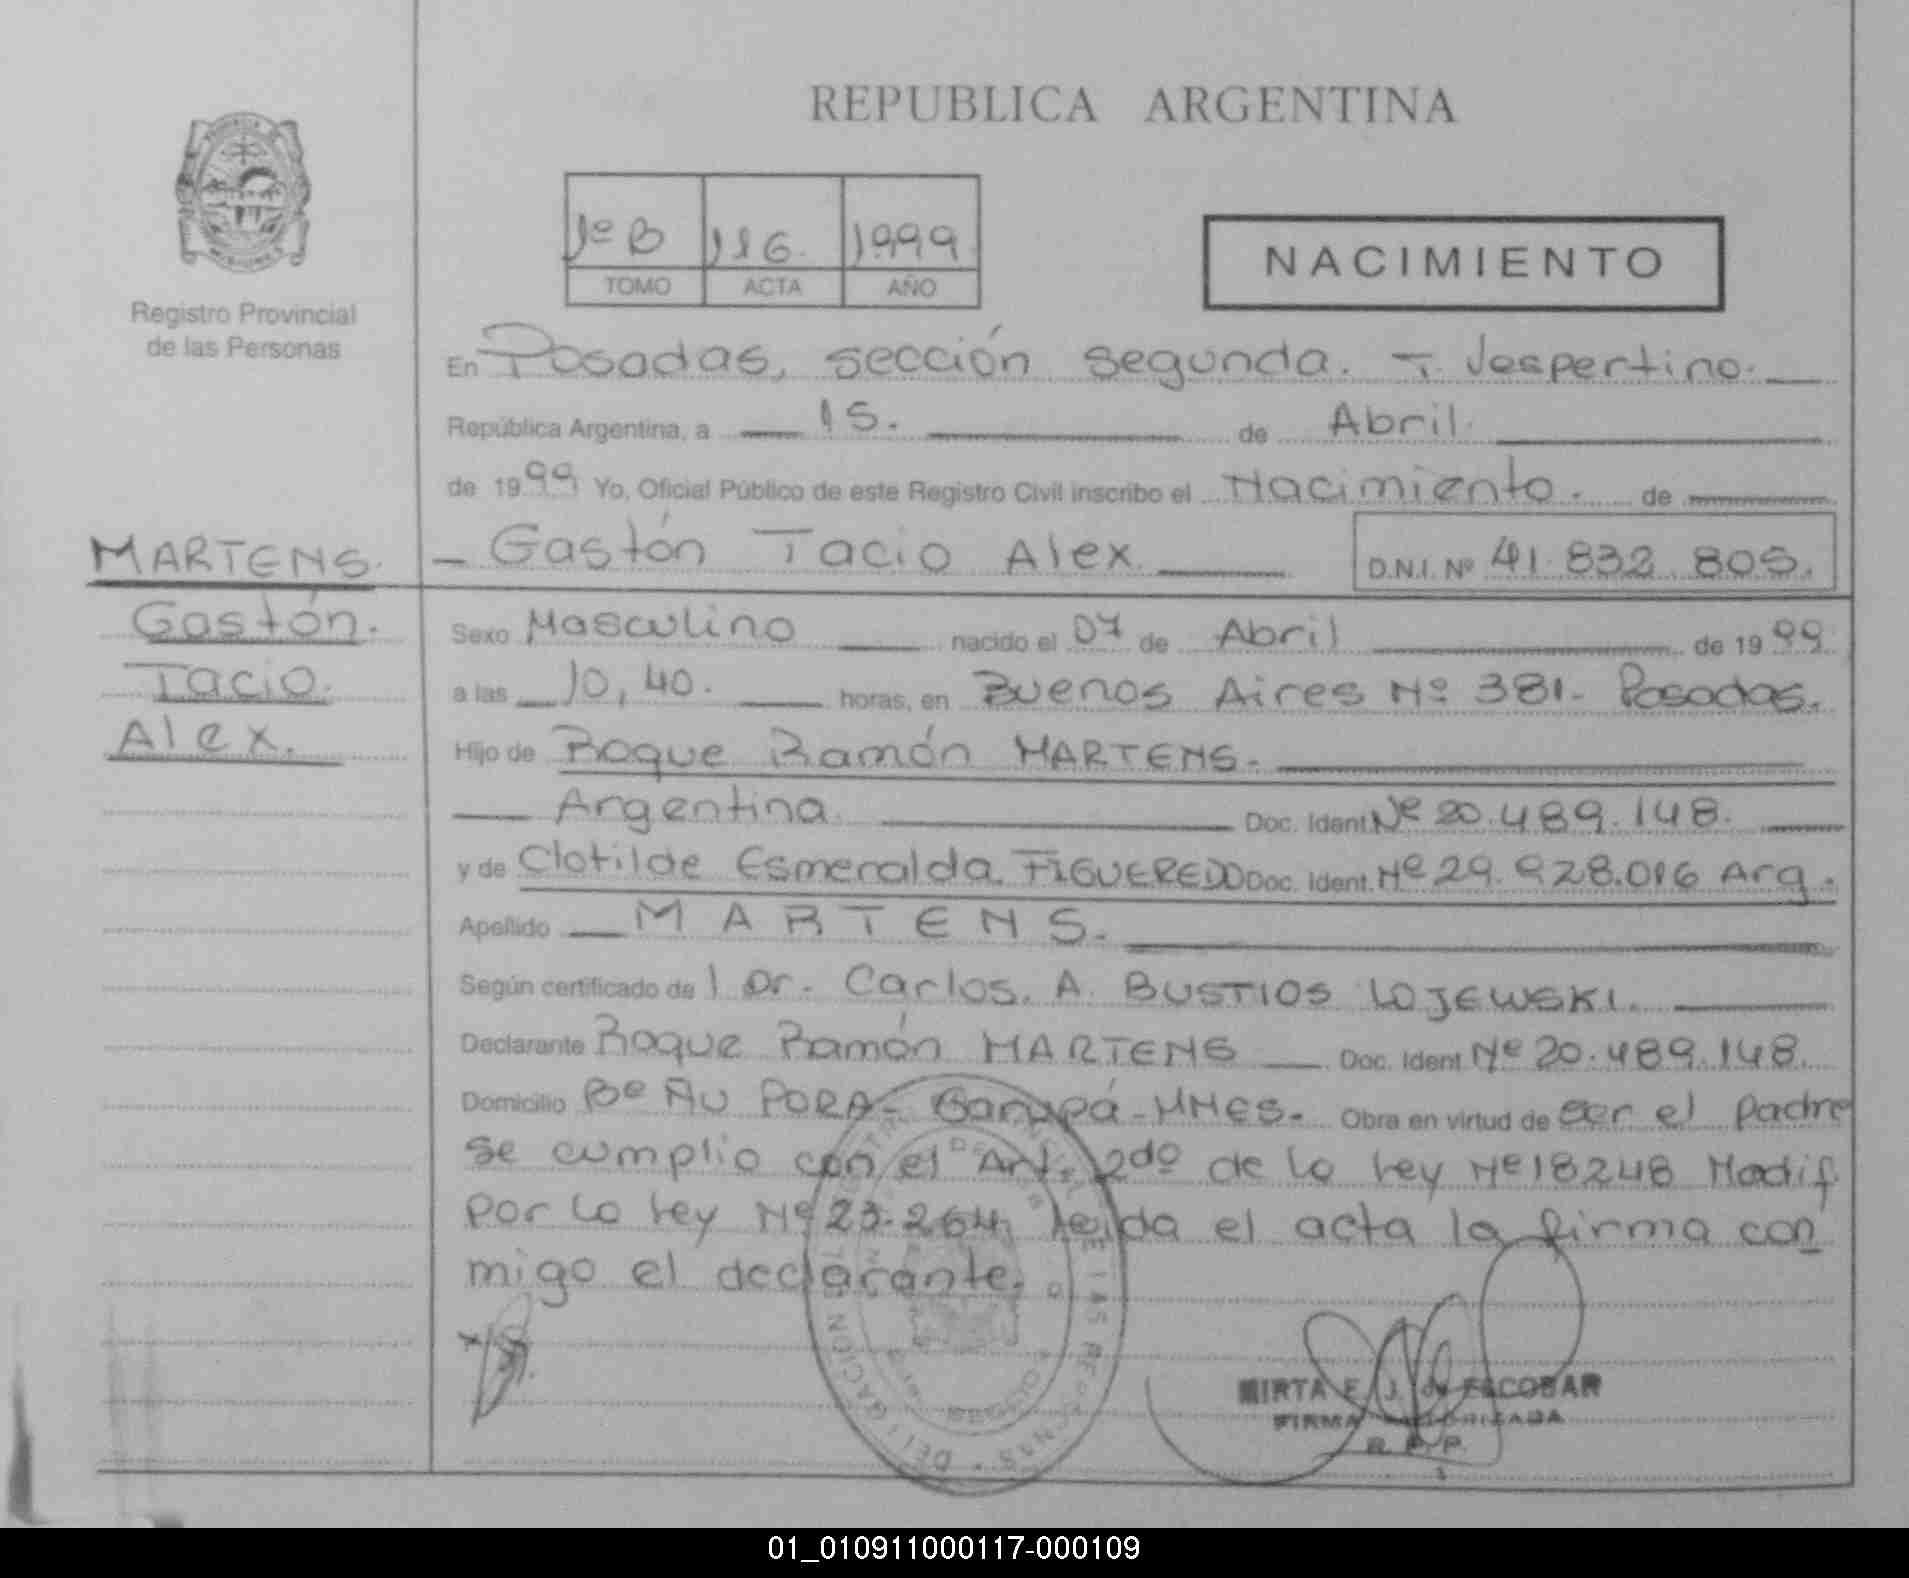 REPUBLICA ARGENTINA
1º B 116. 1999
TOMO ACTA AÑO
NACIMIENTO
Registro Provincial
de las Personas
En Posadas, sección segunda. T. Vespertino.
República Argentina, a 15. de Abril.
de 1999 Yo, Oficial Público de este Registro Civil inscribo el Nacimiento. de
MARTENS. Gastón Tacio Alex D.N.I. Nº 41.832.805.
Gastón. Sexo Masculino nacido el 07 de Abril de 1999
Tacio. a las 10,40. horas, en Buenos Aires Nº 381- Posadas.
Alex. Hijo de Roque Ramón MARTENS.
Argentina Doc. Ident. Nº 20.489.148.
y de Clotilde Esmeralda FIGUEREDO Doc. Ident. Nº 29.928.016 Arg.
Apellido MARTENS.
Según certificado de l Dr. Carlos. A. BUSTIOS LOJEWSKI.
Declarante Roque Ramón MARTENS Doc. Ident. Nº 20.489.148.
Domicilio Bº ÑU PORA- Garupá-MNES. Obra en virtud de ser el padre
se cumplio con el Art. 2do de la Ley Nº 18248 Modif
por la Ley Nº 23.264, leida el acta la firma con
migo el declarante.
MIRTA E. J. de ESCOBAR
FIRMA AUTORIZADA
R. P. P.
01_010911000117-000109